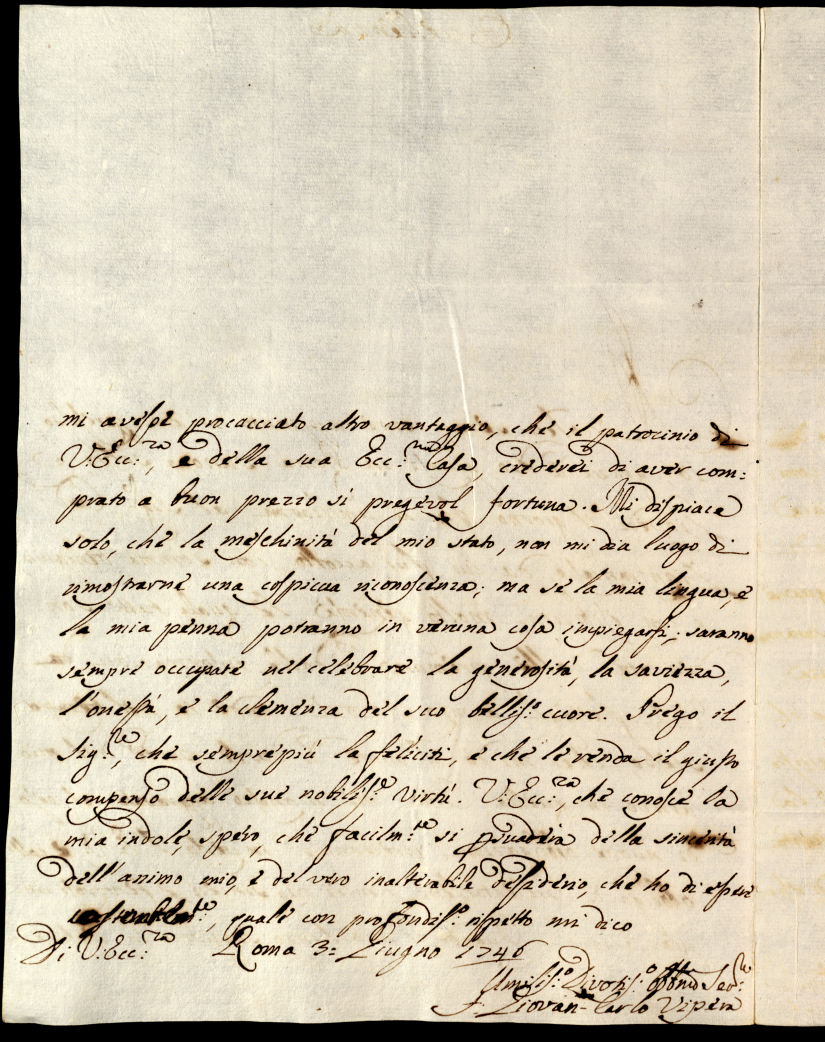 mi avesse procacciato altro vantaggio, che il patrocinio di
V: Ecc:za, e della sua Ecc:ma Casa, crederei di aver com:
prato a buon prezzo si pregevol fortuna. Mi dispiace
solo, che la meschinità del mio stato, non mi dia luogo di
rimostrarne una cospicua riconoscenza; ma se la mia lingua, e
la mia penna potranno in veruna cosa impiegarsi; saranno
sempre occupate nel celebrare la generosità, la saviezza,
l'onestà, e la clemenza del suo belliss:o cuore. Prego il
Sig:re, che semprepiù la feliciti, e che le renda il giusto
compenso delle sue nobiliss:e virtù. V: Ecc:za, che conosce la
mia indole, spero, che facilm:te si psuaderà della sincerità
dell'animo mio, e del vero inalterabile desiderio, che ho di essere
quale con profondiss:o rispetto mi dico
Di V: Ecc:za Roma 3= Giugno 1746
Umiliss:o Divotis:o Obbmo Ser:re
F. Giovan-Carlo Vipera